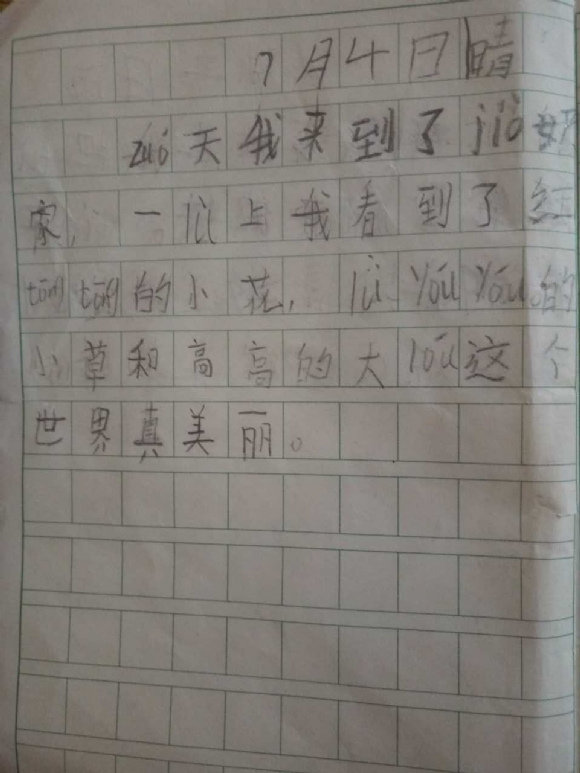 7月4日晴
zuó天我来到了jiù奶
家,一lù上我看到了红
tōng tōng的小花,lǜ yóu yóu的
小草和高高的大lóu这个
世界真美丽。